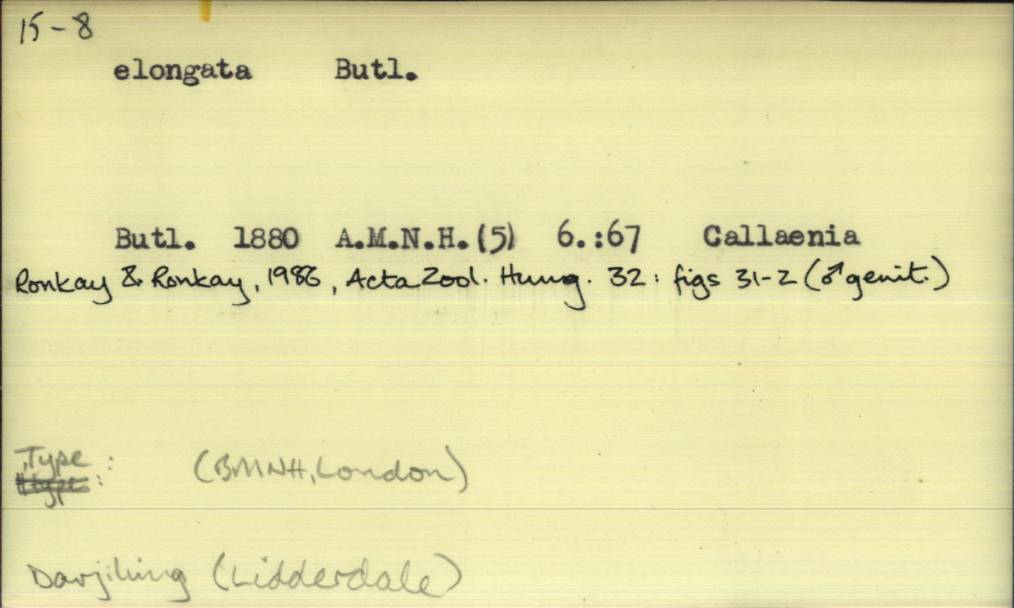 15-8
elongata Butl.
Butl. 1880 A.M.N.H.(5) 6.:67 Callaenia
Ronkay & Ronkay, 1986, Acta Zool. Hung. 32: figs 31-2 (♂ genit.)
Type: (BMNH, London)
Darjiling (Lidderdale)